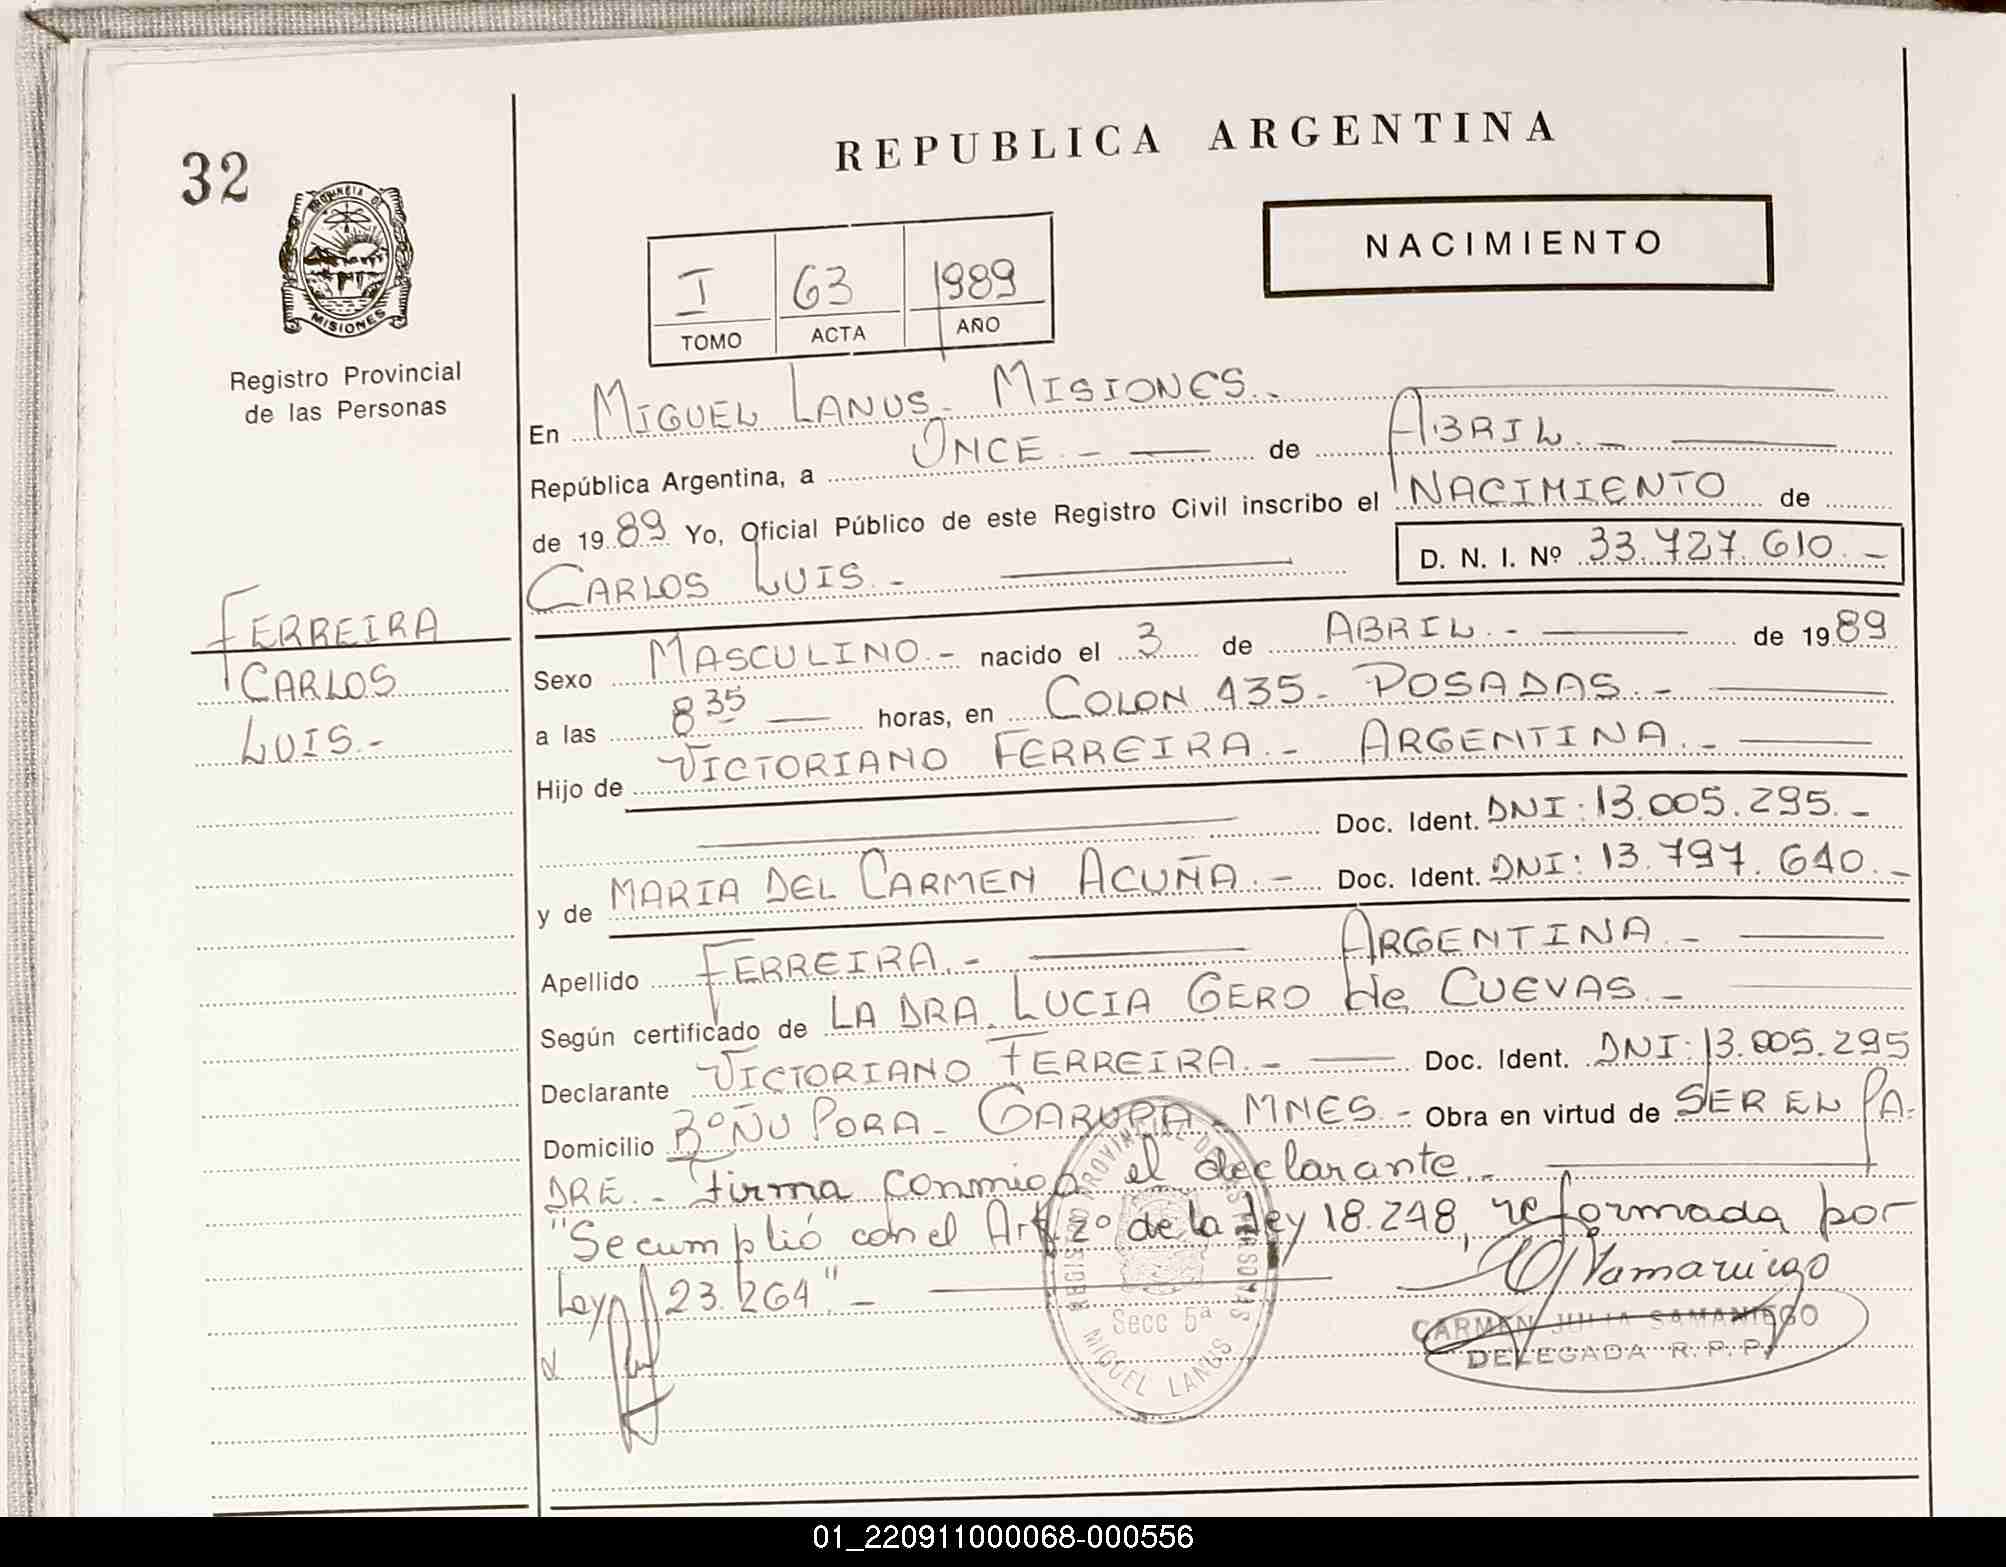 32
PROVINCIA DE
MISIONES
Registro Provincial
de las Personas
REPUBLICA ARGENTINA
NACIMIENTO
I 63 1989
TOMO ACTA AÑO
En MIGUEL LANUS - MISIONES.-
República Argentina, a ONCE.- de ABRIL.-
de 1989 Yo, Oficial Público de este Registro Civil inscribo el NACIMIENTO de
CARLOS LUIS.- D. N. I. Nº 33.727.610.-
FERREIRA
CARLOS
LUIS.-
Sexo MASCULINO.- nacido el 3 de ABRIL.- de 1989
a las 8 35 horas, en COLON 435- POSADAS.-
Hijo de VICTORIANO FERREIRA.- ARGENTINA.-
Doc. Ident. DNI: 13.005.295.-
y de MARIA DEL CARMEN ACUÑA.- Doc. Ident. DNI: 13.797.640.-
Apellido FERREIRA.- ARGENTINA.-
Según certificado de LA DRA. LUCIA GERO de CUEVAS.-
Declarante VICTORIANO FERREIRA.- Doc. Ident. DNI: 13.005.295
Domicilio Bº ÑU PORA - GARUPA - MNES.- Obra en virtud de SER EN PA-
DRE.- Firma conmigo el declarante.-
"Se cumplió con el Art 2º de la ley 18.248, reformada por
Ley 23.264".-
REGISTRO PROVINCIAL DE LAS PERSONAS
Secc 5ª
MIGUEL LANUS
CARMEN JULIA SAMANIEGO
DELEGADA R. P. P.
01_220911000068-000556